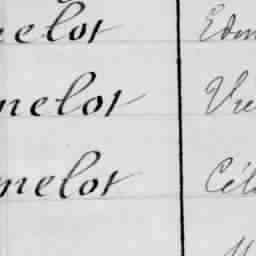 elot Edm
melot Vic
melot Cél